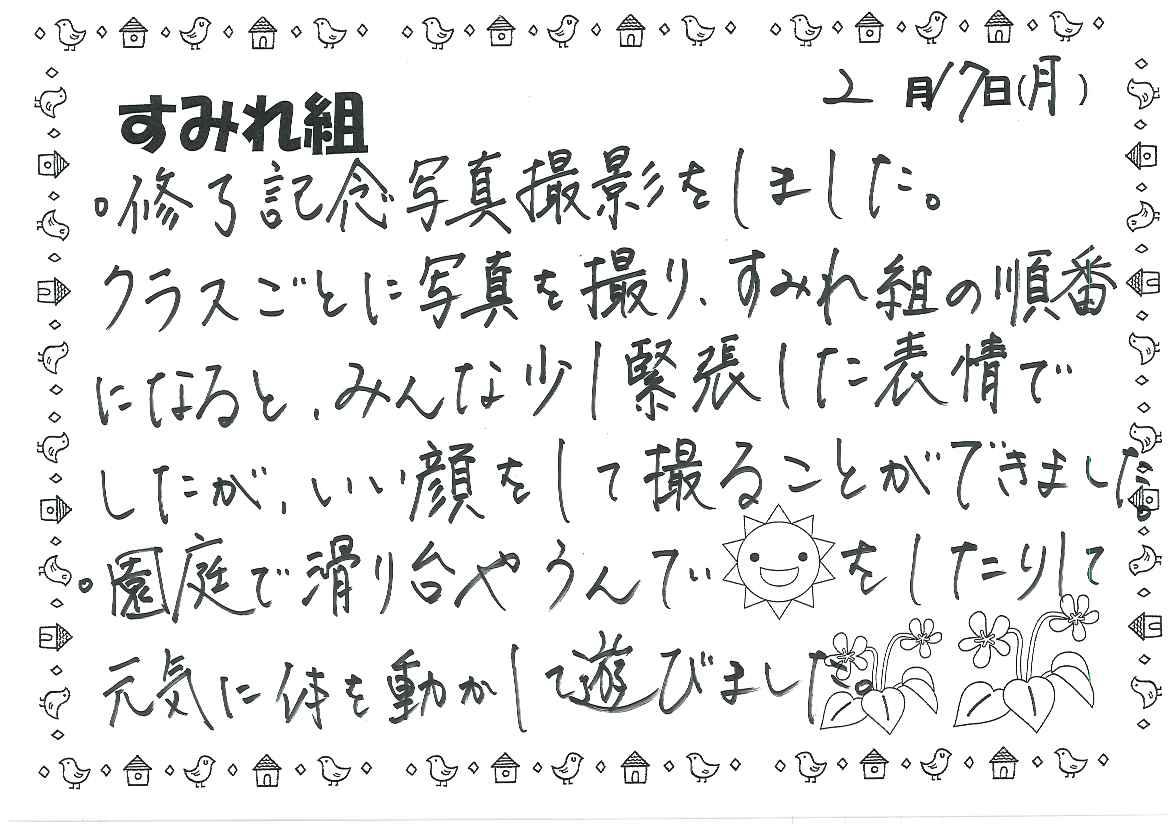 2月17日(月)
すみれ組
。修了記念写真撮影をしました。
クラスごとに写真を撮り、すみれ組の順番
になると、みんな少し緊張した表情で
したが、いい顔をして撮ることができました。
。園庭で滑り台やうんていをしたりして
元気に体を動かして遊びました。